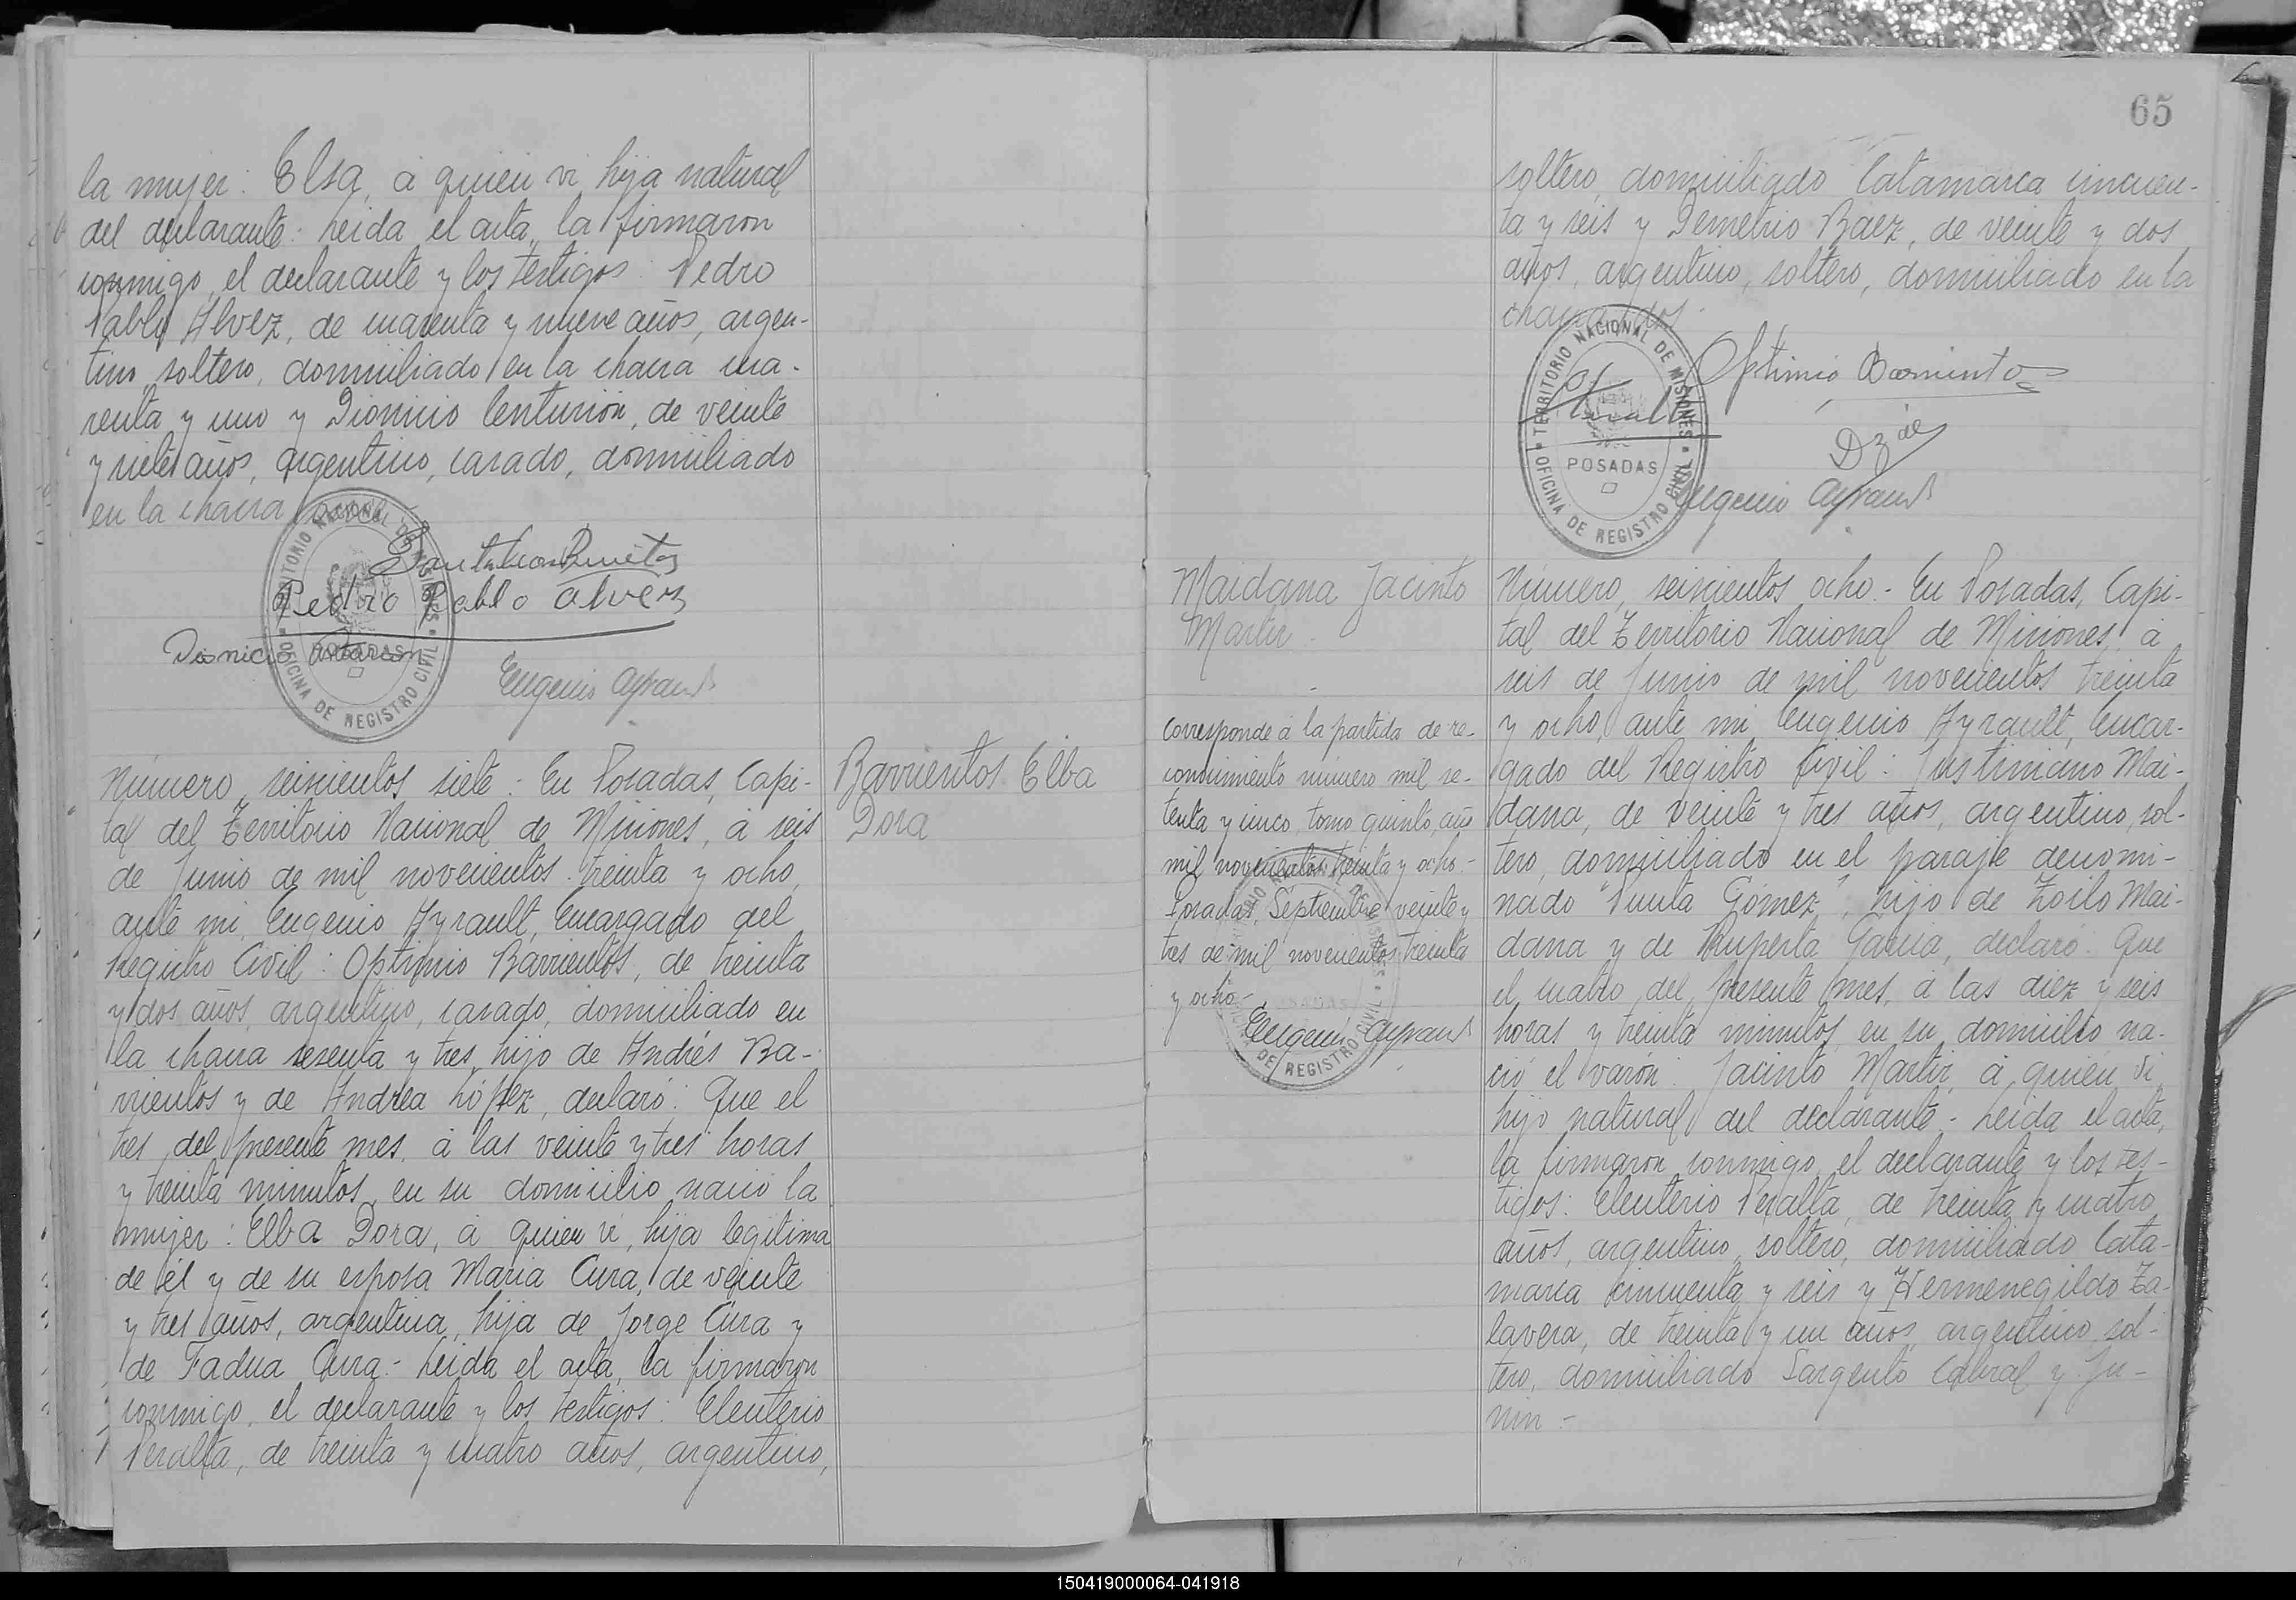 la mujer: Elsa, á quien vi hija natural
del declarante: Leida el acta, la firmaron
conmigo, el declarante y los testigos: Pedro
Pablo Alvez, de cuarenta y nueve años, argen-
tino, soltero, domiciliado en la chacra cua-
renta y uno y Dionicio Centurión, de veinte
y siete años, argentino, casado, domiciliado
en la chacra
Pedro Pablo Alvez
Dionicio
Eugenio Ayrault
TERRITORIO NACIONAL DE MISIONES
POSADAS
OFICINA DE REGISTRO CIVIL
Número, seiscientos siete: En Posadas, Capi-
tal del Territorio Nacional de Misiones, á seis
de Junio de mil novecientos treinta y ocho,
ante mi, Eugenio Ayrault, Encargado del
Registro Civil: Optimio Barrientos, de treinta
y dos años, argentino, casado, domiciliado en
la chacra sesenta y tres, hijo de Andrés Ba-
rrientos y de Andrea López, declaró: Que el
tres del presente mes, á las veinte y tres horas
y treinta minutos, en su domicilio nació la
mujer: Elba Dora, á quien vi, hija legitima
de él y de su esposa Maria Cura, de veinte
y tres años, argentina, hija de Jorge Cura y
de Fadua Cura.- Leida el acta, la firmaron
conmigo, el declarante y los testigos: Eleuterio
Peralta, de treinta y cuatro años, argentino,
Barrientos Elba
Dora
65
soltero, domiciliado Catamarca cincuen-
ta y seis y Demetrio Baez, de veinte y dos
años, argentino, soltero, domiciliado en la
chacra dos.
Optimio Barrientos
Eugenio Ayrault
TERRITORIO NACIONAL DE MISIONES
POSADAS
OFICINA DE REGISTRO CIVIL
Maidana Jacinto
Martir.
Corresponde á la partida de re-
conocimiento número mil se-
tenta y cinco, tomo quinto, año
mil novecientos treinta y ocho.-
Posadas, Septiembre veinte y
tres de mil novecientos treinta
y ocho.-
Eugenio Ayrault
DE REGISTRO CIVIL
Número, seiscientos ocho.- En Posadas, Capi-
tal del Territorio Nacional de Misiones, á
seis de Junio de mil novecientos treinta
y ocho, ante mi, Eugenio Ayrault, Encar-
gado del Registro Civil: Justiniano Mai-
dana, de veinte y tres años, argentino, sol-
tero, domiciliado en el paraje denomi-
nado "Punta Gómez", hijo de Zoilo Mai-
dana y de Ruperta Garcia, declaró: Que
el cuatro del presente mes, á las diez y seis
horas y treinta minutos, en su domicilio na-
ció el varón: Jacinto Martir, á quien vi,
hijo natural del declarante.- Leida el acta,
la firmaron conmigo, el declarante y los tes-
tigos: Eleuterio Peralta, de treinta y cuatro
años, argentino, soltero, domiciliado Cata-
marca cincuenta y seis y Hermenegildo Za-
lavera, de treinta y un años, argentino, sol-
tero, domiciliado Sargento Cabral y Ju-
nin.-
150419000064-041918